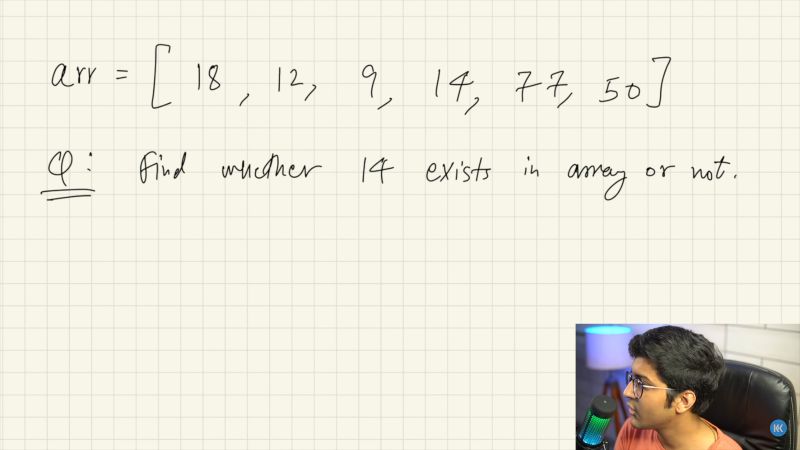 arr = [ 18, 12, 9, 14, 77, 50 ]
Q: Find whether 14 exists in array or not.